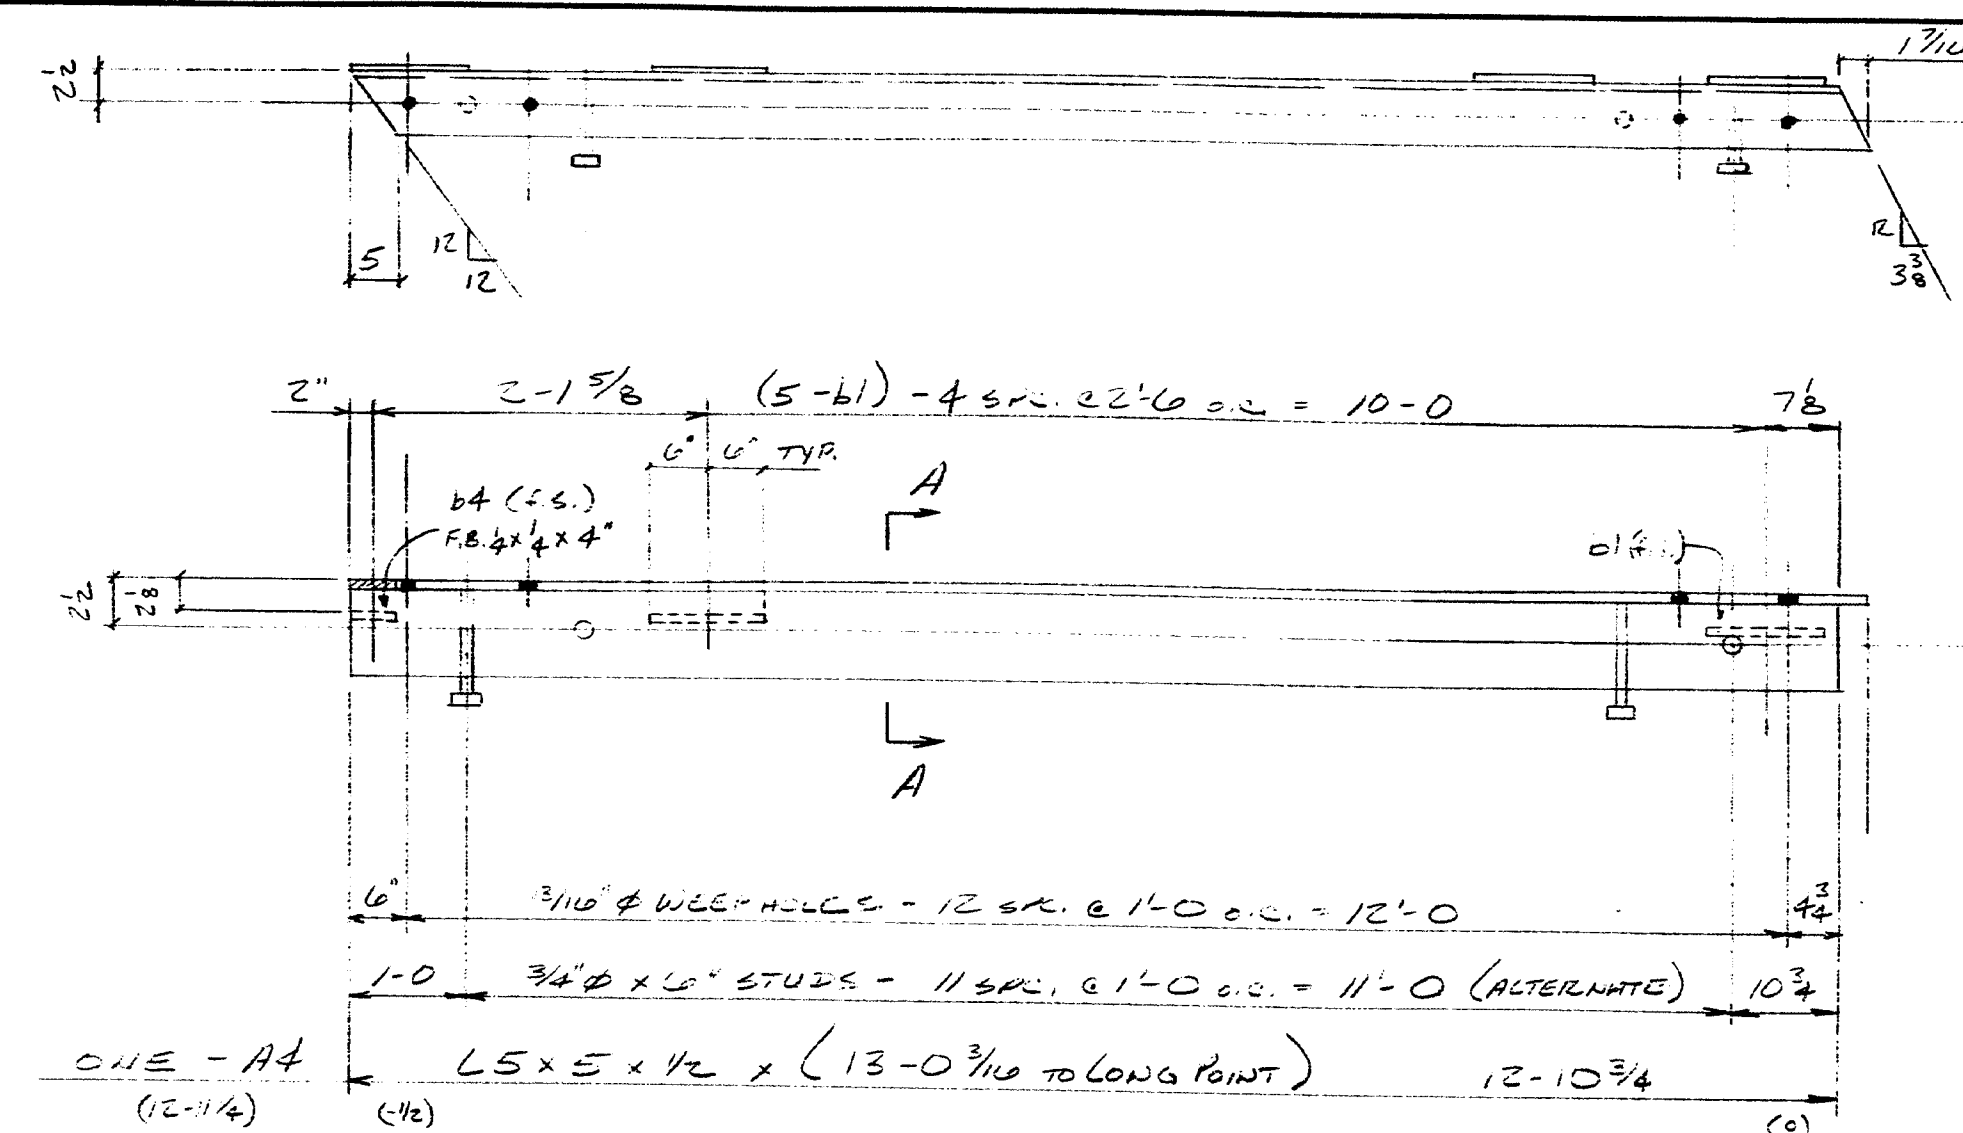 2 1/2
1 7/16
5
12
12
12
3 3/8
2"
2-1 5/8
(5-b1) - 4 SPC. @ 2'-6 o.c. = 10-0
7 1/8
6" 6" TYP.
A
b4 (f.s.)
F.B. 1/4 x 1/4 x 4"
b1 (f.s.)
2 1/2
2 1/8
A
6"
3/16" φ WEEP HOLES - 12 SPC. @ 1'-0 o.c. = 12'-0
4 3/4
1-0
3/4" φ x 6" STUDS - 11 SPC. @ 1'-0 o.c. = 11'-0 (ALTERNATE)
10 3/4
ONE - A4
L5 x 5 x 1/2 x (13-0 3/16 TO LONG POINT)
12-10 3/4
(12-11 1/4)
(-1/2)
(0)